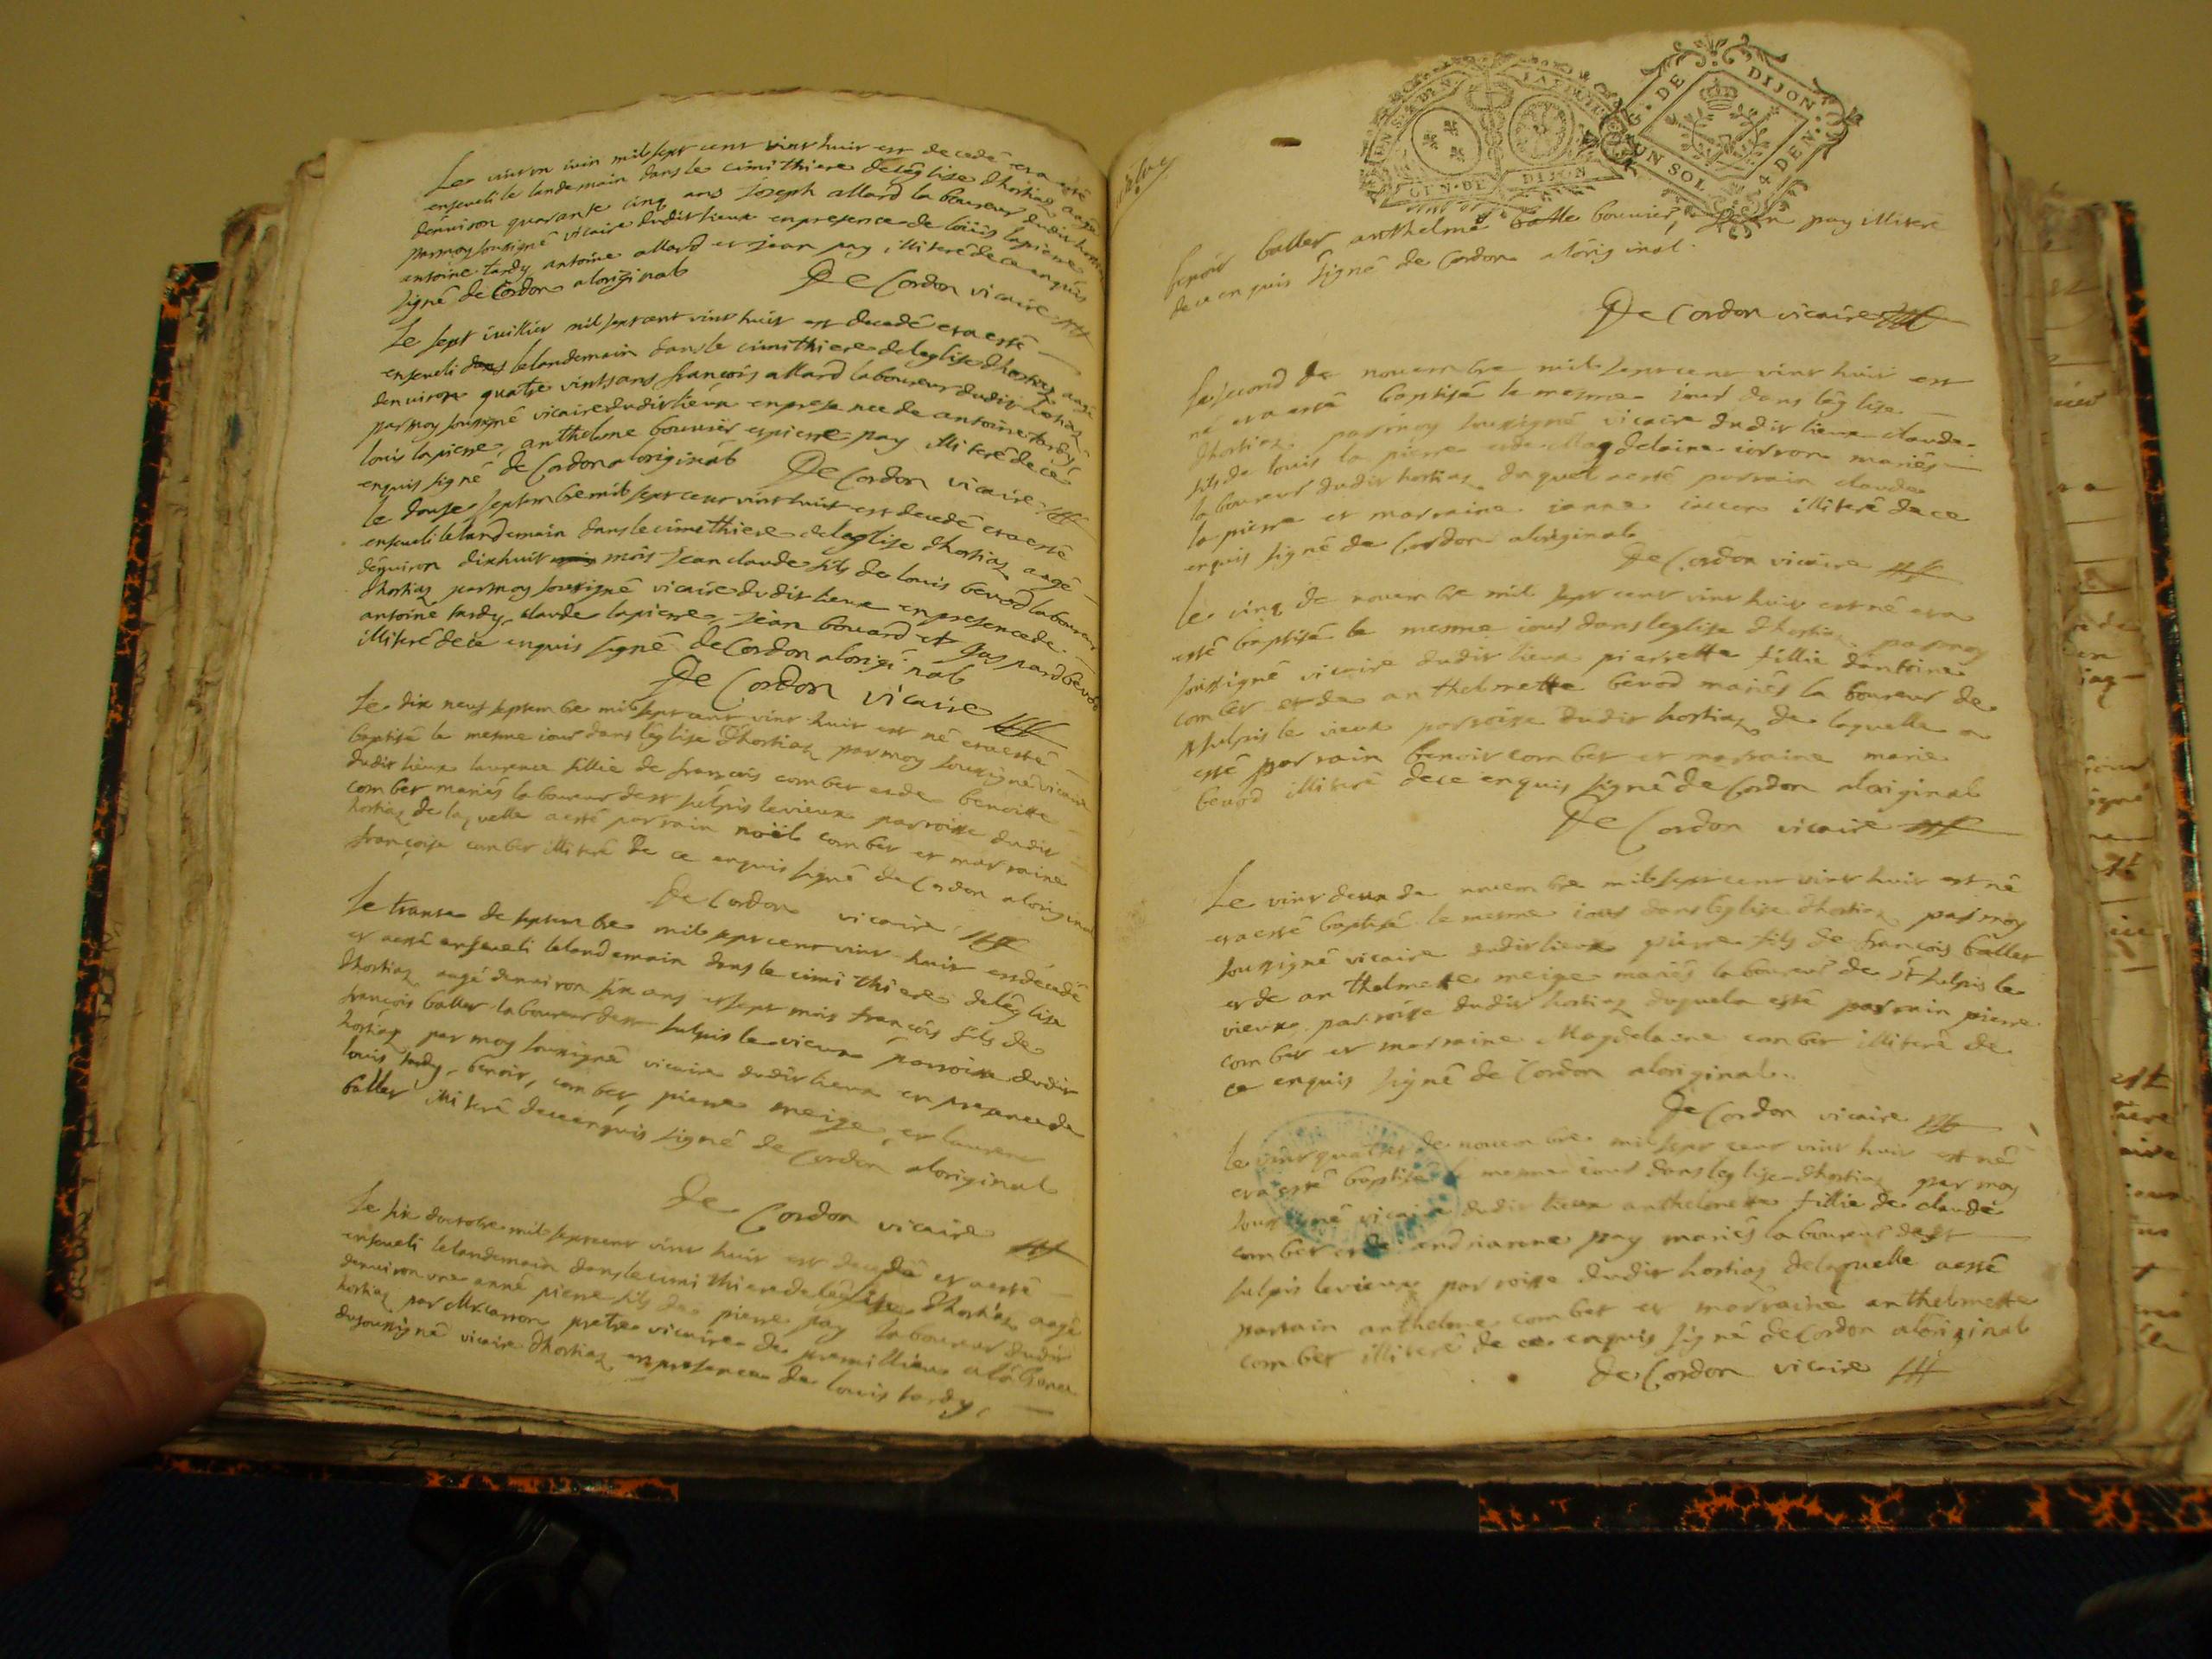 Le vint un iuin mil sept cent vint huit est decedé et a esté
enseveli le landemain dans le cimithiere de léglise dhostiaz aagé
denviron quarante cinq ans Joseph allard laboureur dudit hostiaz
par moy soussigné vicaire dudit lieux en presence de loüis lapierre
antoine tardy antoine allard et jean pay illiteré de ce enquis
signé de Cordon a loriginal
De Cordon vicaire
Le sept iuillier mil sept cent vint huit est decedé et a esté
enseveli dans le landemain dans le cimithiere de leglise dhostiaz aagé
denviron quatre vints ans francois allard laboureur dudit hostiaz
par moy soussigné vicaire dudit lieux en presence de antoine tardy
louis lapierre, anthelme bouvier et pierre pay illiteré de ce
enquis signé de Cordon a loriginal
De Cordon vicaire
le douse septembre mil sept cent vint huit est decedé et a esté
enseveli le landemain dans le cimithiere de leglise dhostiaz aagé
denviron dixhuit mois mois Jean claude fils de louis bevod laboureur
dhostiaz par moy soussigné vicaire dudit lieux en presence de
antoine tardy, claude lapierre, jean bouard et gaspard bevod
illiteré de ce enquis signé de Cordon a loriginal
De Cordon vicaire
Le dix neuf septembre mil sept cent vint huit est né et a esté
baptisé le mesme iour dans léglise dhostiaz par moy soussigné vicaire
dudit lieux laurence fillie de francois combet et de benoitte
combet mariés laboureur de st sulpis le vieux parroisse dudit
hostiaz de laquelle a esté parrain noël combet et marraine
françoise combet illiteré de ce enquis signé de Cordon a loriginal
De Cordon vicaire
Le trante de septembre mil sept cent vint huit est decedé
et a esté enseveli le landemain dans le cimithiere de léglise
dhostiaz aagé denviron six ans et sept mois francois fils de
francois ballet laboureur de st sulpis le vieux parroisse dudit
hostiaz par moy soussigné vicaire dudit lieux en presence de
louis tardy, benoit, combet, pierre meige, et laurent
ballet illiteré de ce enquis signé de Cordon a loriginal
De Cordon vicaire
Le six doctobre mil sept cent vint huit est decedé et a esté
enseveli le landemain dans le cimithiere de léglise dhostiaz aagé
denviron une anné pierre fils de pierre pay laboureur dudit
hostiaz par Mr carron pretre vicaire de premillieu a labsence
du soussigné vicaire dhostiaz en presence de louis tardy,
GEN. DE DIJON
G. DE DIJON
UN SOL 4 DEN.
benoit ballet anthelme balle bouvier, jean pay illiteré
de ce enquis signé de Cordon a loriginal
De Cordon vicaire
Le second de novembre mil sept cent vint huit est
né et a esté baptisé le mesme iour dans léglise
dhostiaz par moy soussigné vicaire dudit lieux claude
fils de louis la pierre et de Magdelaine mariés
laboureur dudit hostiaz duquel a esté parrain claude
la pierre et marraine ianne illiteré de ce
enquis signé de Cordon a loriginal
De Cordon vicaire
Le cinq de novembre mil sept cent vint huit est né et a
esté baptisé le mesme iour dans leglise dhostiaz par moy
soussigné vicaire dudit lieux pierrette fillie dantoine
combet et de anthelmette bevod mariés laboureur de
st sulpis le vieux parroisse dudit hostiaz de laquelle a
esté parrain benoit combet et marraine marie
bevod illiteré de ce enquis signé de Cordon a loriginal
De Cordon vicaire
Le vint deux de novembre mil sept cent vint huit est né
et a esté baptisé le mesme iour dans léglise dhostiaz par moy
soussigné vicaire dudit lieux pierre fils de francois ballet
et de anthelmette meige mariés laboureur de st sulpis le
vieux parroisse dudit hostiaz duquel a esté parrain pierre
combet et marraine Magdelaine combet illiteré de
ce enquis signé de Cordon a loriginal
De Cordon vicaire
Le vint quatre de novembre mil sept cent vint huit est né
et a esté baptisé le mesme iour dans leglise dhostiaz par moy
soussigné vicaire dudit lieux anthelmette fillie de claude
combet et de andrianne pay mariés laboureur de st
sulpis le vieux parroisse dudit hostiaz de laquelle a esté
parrain anthelme combet et marraine anthelmette
combet illiteré de ce enquis signé de Cordon a loriginal
De Cordon vicaire